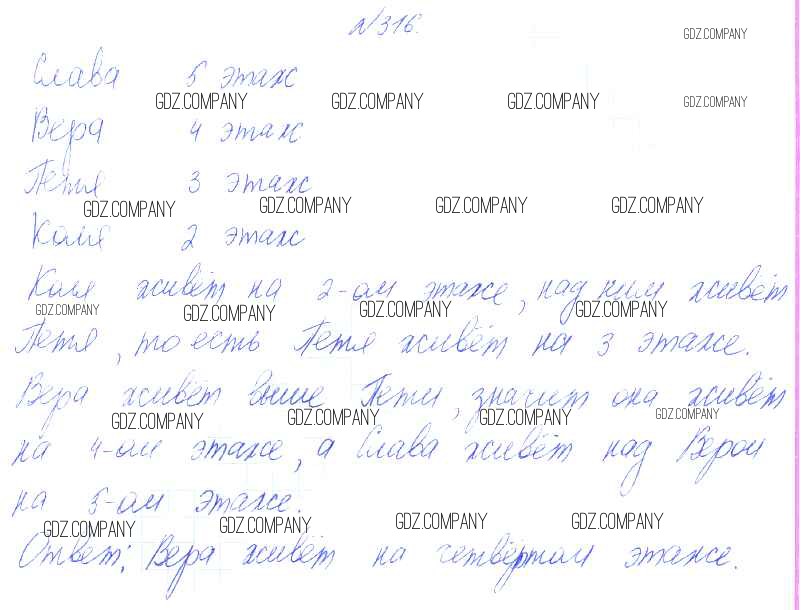 №316.
GDZ.COMPANY
Слава 5 этаж
GDZ.COMPANY GDZ.COMPANY GDZ.COMPANY GDZ.COMPANY
Вера 4 этаж
Петя 3 этаж
GDZ.COMPANY GDZ.COMPANY GDZ.COMPANY GDZ.COMPANY
Коля 2 этаж
Коля живёт на 2-ом этаже, над ним живёт
GDZ.COMPANY GDZ.COMPANY GDZ.COMPANY GDZ.COMPANY
Петя, то есть Петя живёт на 3 этаже.
Вера живёт выше Пети, значит она живёт
GDZ.COMPANY GDZ.COMPANY GDZ.COMPANY GDZ.COMPANY
на 4-ом этаже, а Слава живёт над Верой
на 5-ом этаже.
GDZ.COMPANY GDZ.COMPANY GDZ.COMPANY GDZ.COMPANY
Ответ: Вера живёт на четвёртом этаже.